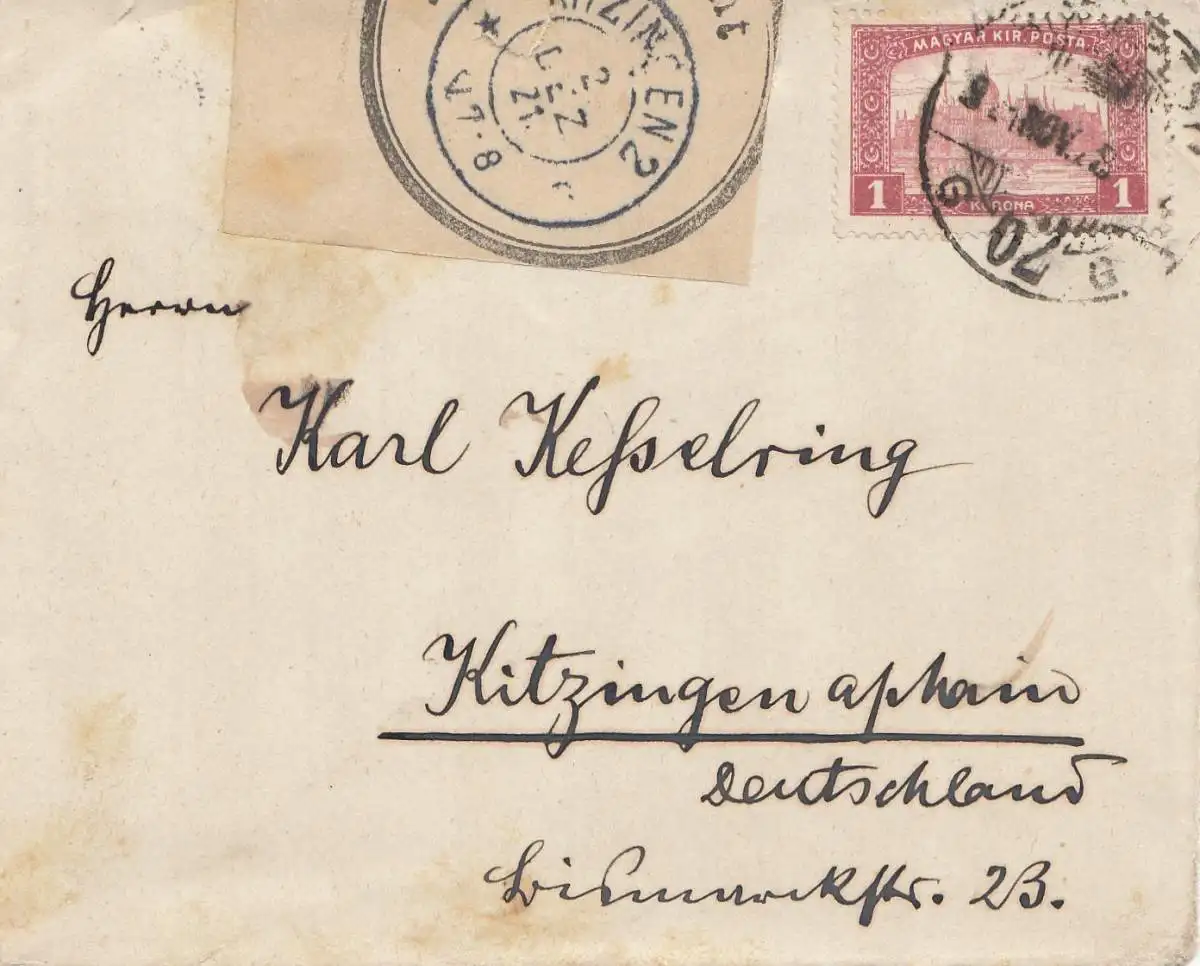 KITZINGEN 2
2
DEZ
21
V. 7-8
MAGYAR KIR. POSTA
1 KORONA 1
921 NOV. 28
Herrn
Karl Keſselring
Kitzingen a/Main
Deutschland
Bismarckstr. 23.